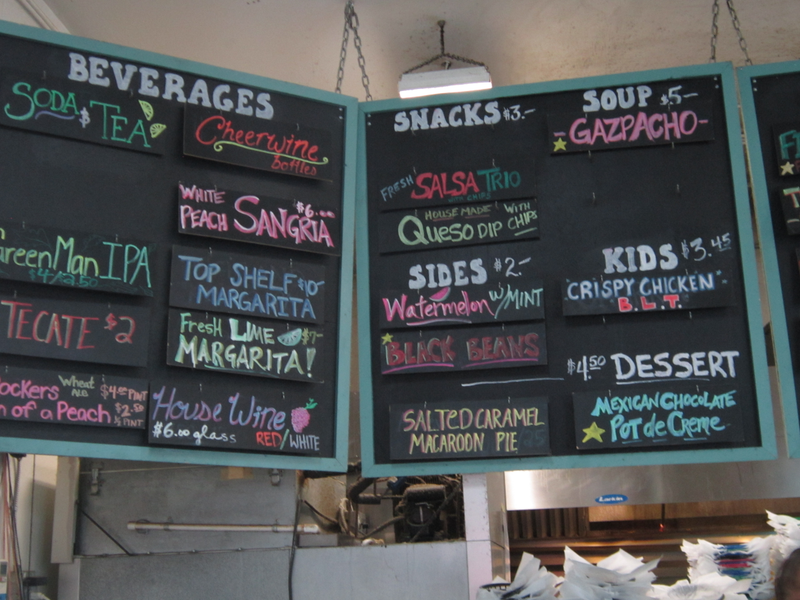 BEVERAGES
SODA $ TEA
Cheerwine
bottles
WHITE $6.
PEACH SANGRIA
GreenMan IPA
$4/2.50
TOP SHELF $10-
MARGARITA
TECATE $2
Fresh LIME $7-
MARGARITA!
Wheat
ockers ALE $4.50 PINT
n of a Peach $2.50
½ PINT
House Wine
$6.00 glass RED/WHITE
SNACKS $3.-
FRESH SALSA TRIO
WITH CHIPS
HOUSE MADE WITH
QUESO DIP CHIPS
SIDES $2.-
Watermelon W/MINT
BLACK BEANS
SALTED CARAMEL
MACAROON PIE
SOUP $5-
-GAZPACHO-
KIDS $3.45
CRISPY CHICKEN-
B.L.T.
$4.50 DESSERT
MEXICAN CHOCOLATE
POT de CREME